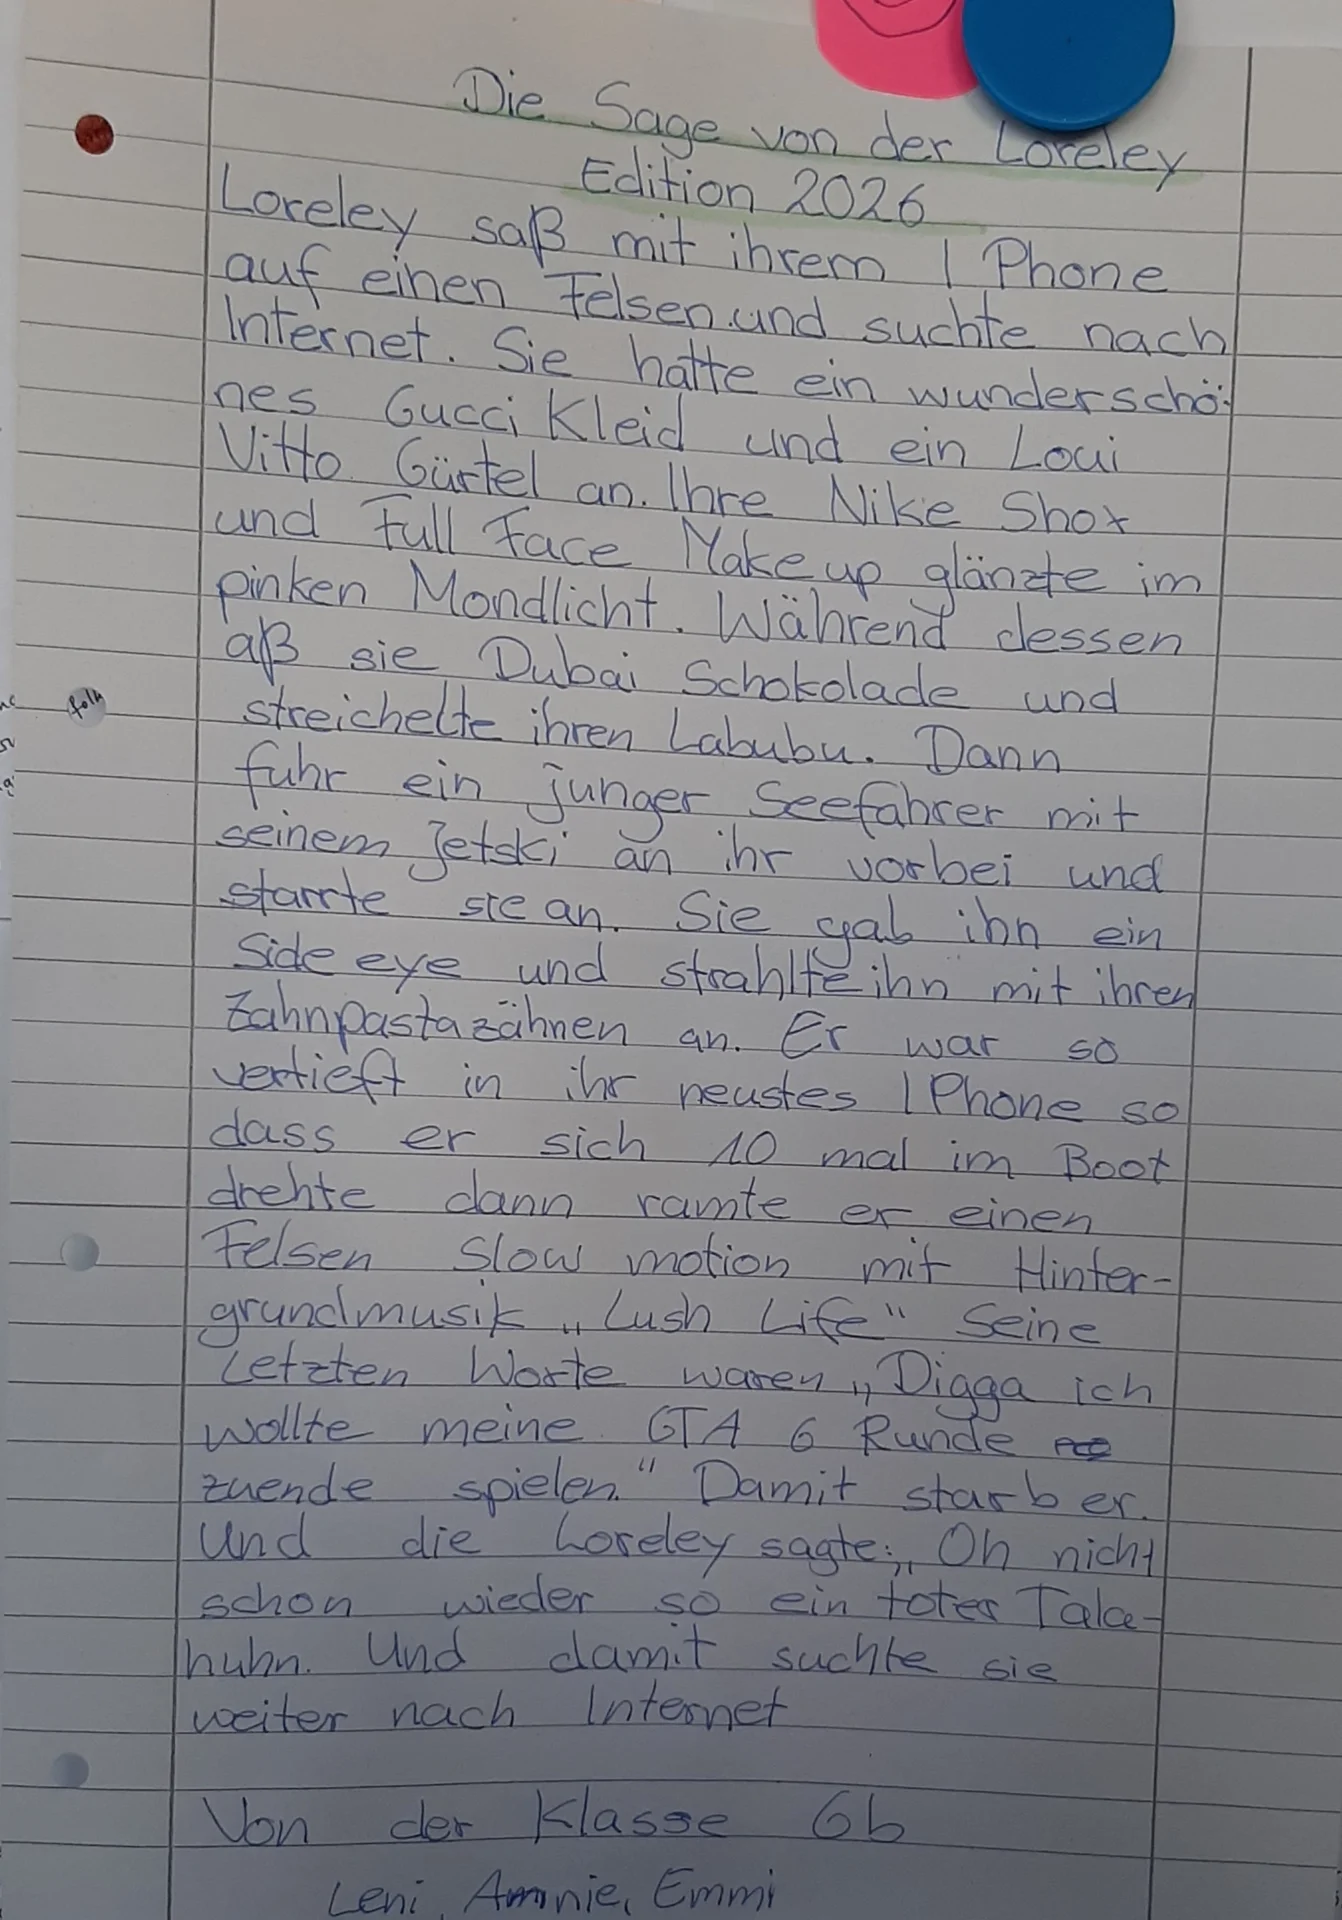 Die Sage von der Loreley
Edition 2026
Loreley saß mit ihrem I Phone
auf einen Felsen und suchte nach
Internet. Sie hatte ein wunderschö-
nes Gucci Kleid und ein Loui
Vitto Gürtel an. Ihre Nike Shox
und Full Face Make up glänzte im
pinken Mondlicht. Während dessen
aß sie Dubai Schokolade und
streichelte ihren Labubu. Dann
fuhr ein junger Seefahrer mit
seinem Jetski an ihr vorbei und
starrte sie an. Sie gab ihn ein
Side eye und strahlte ihn mit ihren
Zahnpastazähnen an. Er war so
vertieft in ihr neustes I Phone so
dass er sich 10 mal im Boot
drehte dann ramte er einen
Felsen Slow motion mit Hinter-
grundmusik „Lush Life“ Seine
Letzten Worte waren „Digga ich
wollte meine GTA 6 Runde
zuende spielen.“ Damit starb er.
Und die Loreley sagte: „Oh nicht
schon wieder so ein totes Tala-
huhn. Und damit suchte sie
weiter nach Internet
Von der Klasse 6b
Leni, Amnie, Emmi